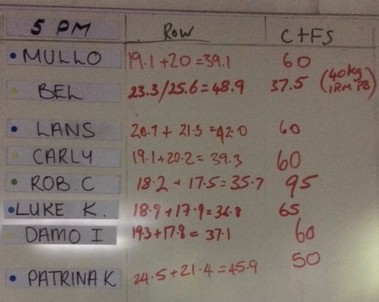 5 PM ROW C+FS
MULLO 19.1+20=39.1 60
BEL 23.3/25.6=48.9 37.5 (40kg 1RM PB)
LANS 20.7+21.3=42.0 60
CARLY 19.1+20.2=39.3 60
ROB.C 18.2+17.5=35.7 95
LUKE K. 18.9+17.9=36.8 65
DAMO I 19.3+17.8=37.1 60
PATRINA K 24.5+21.4=45.9 50